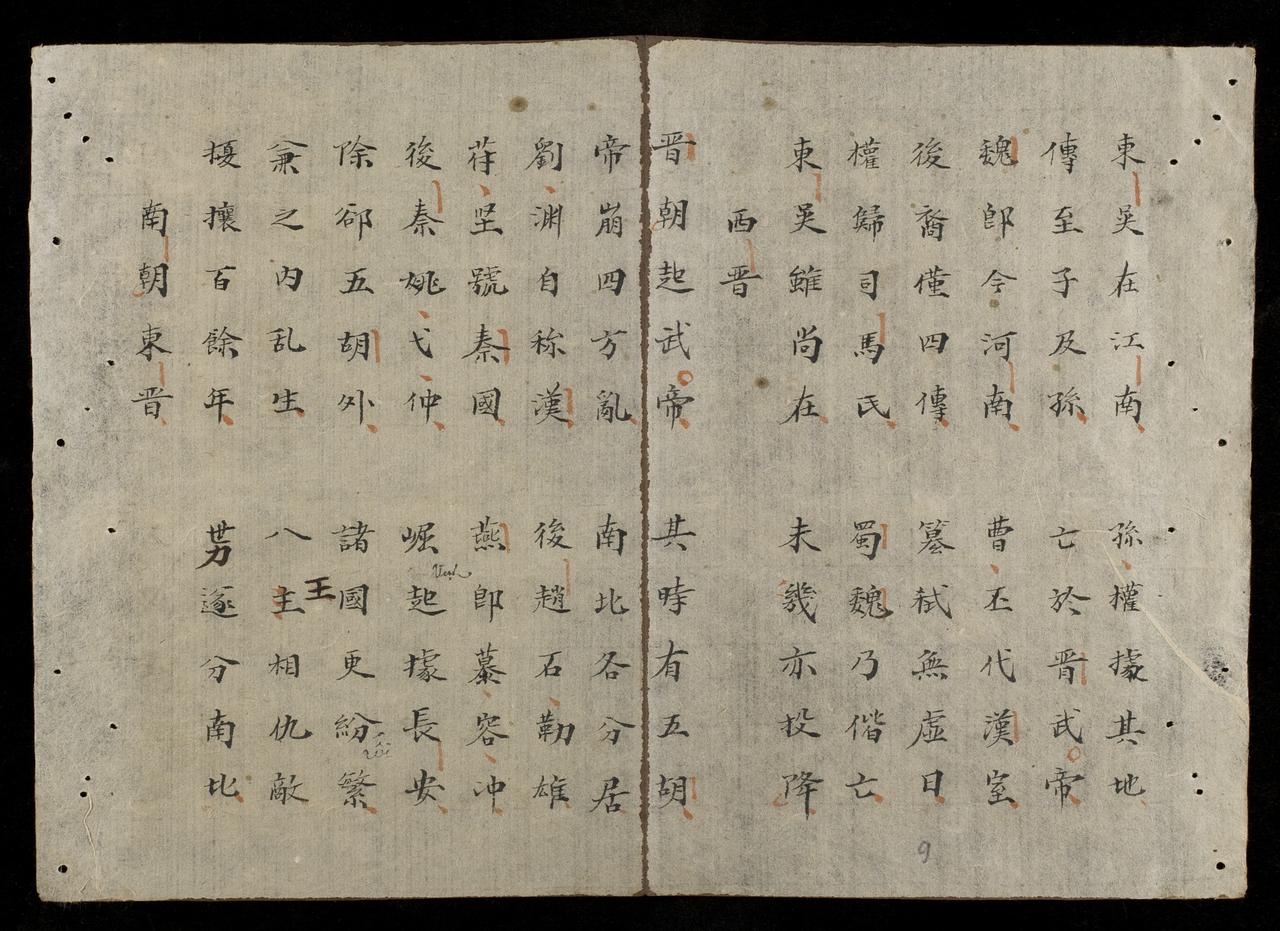 東吴在江南 孫權據其地
傳至子及孫 亡於晋武帝
魏即今河南 曹丕代漢室
後裔僅四傳 簒弑無虚日
權歸司馬氏 蜀魏乃偕亡
東吴雖尚在 未幾亦投降
西晋
晋朝起武帝 其時有五胡
帝崩四方亂 南北各分居
劉渊自称漢 後趙石勒雄
苻坚號秦國 燕即慕容冲
後秦姚弋仲 崛起據長安
除郤五胡外 諸國更紛繁
兼之内乱生 八主相仇敵
王
擾攘百餘年 遂分南北
南朝東晋
9